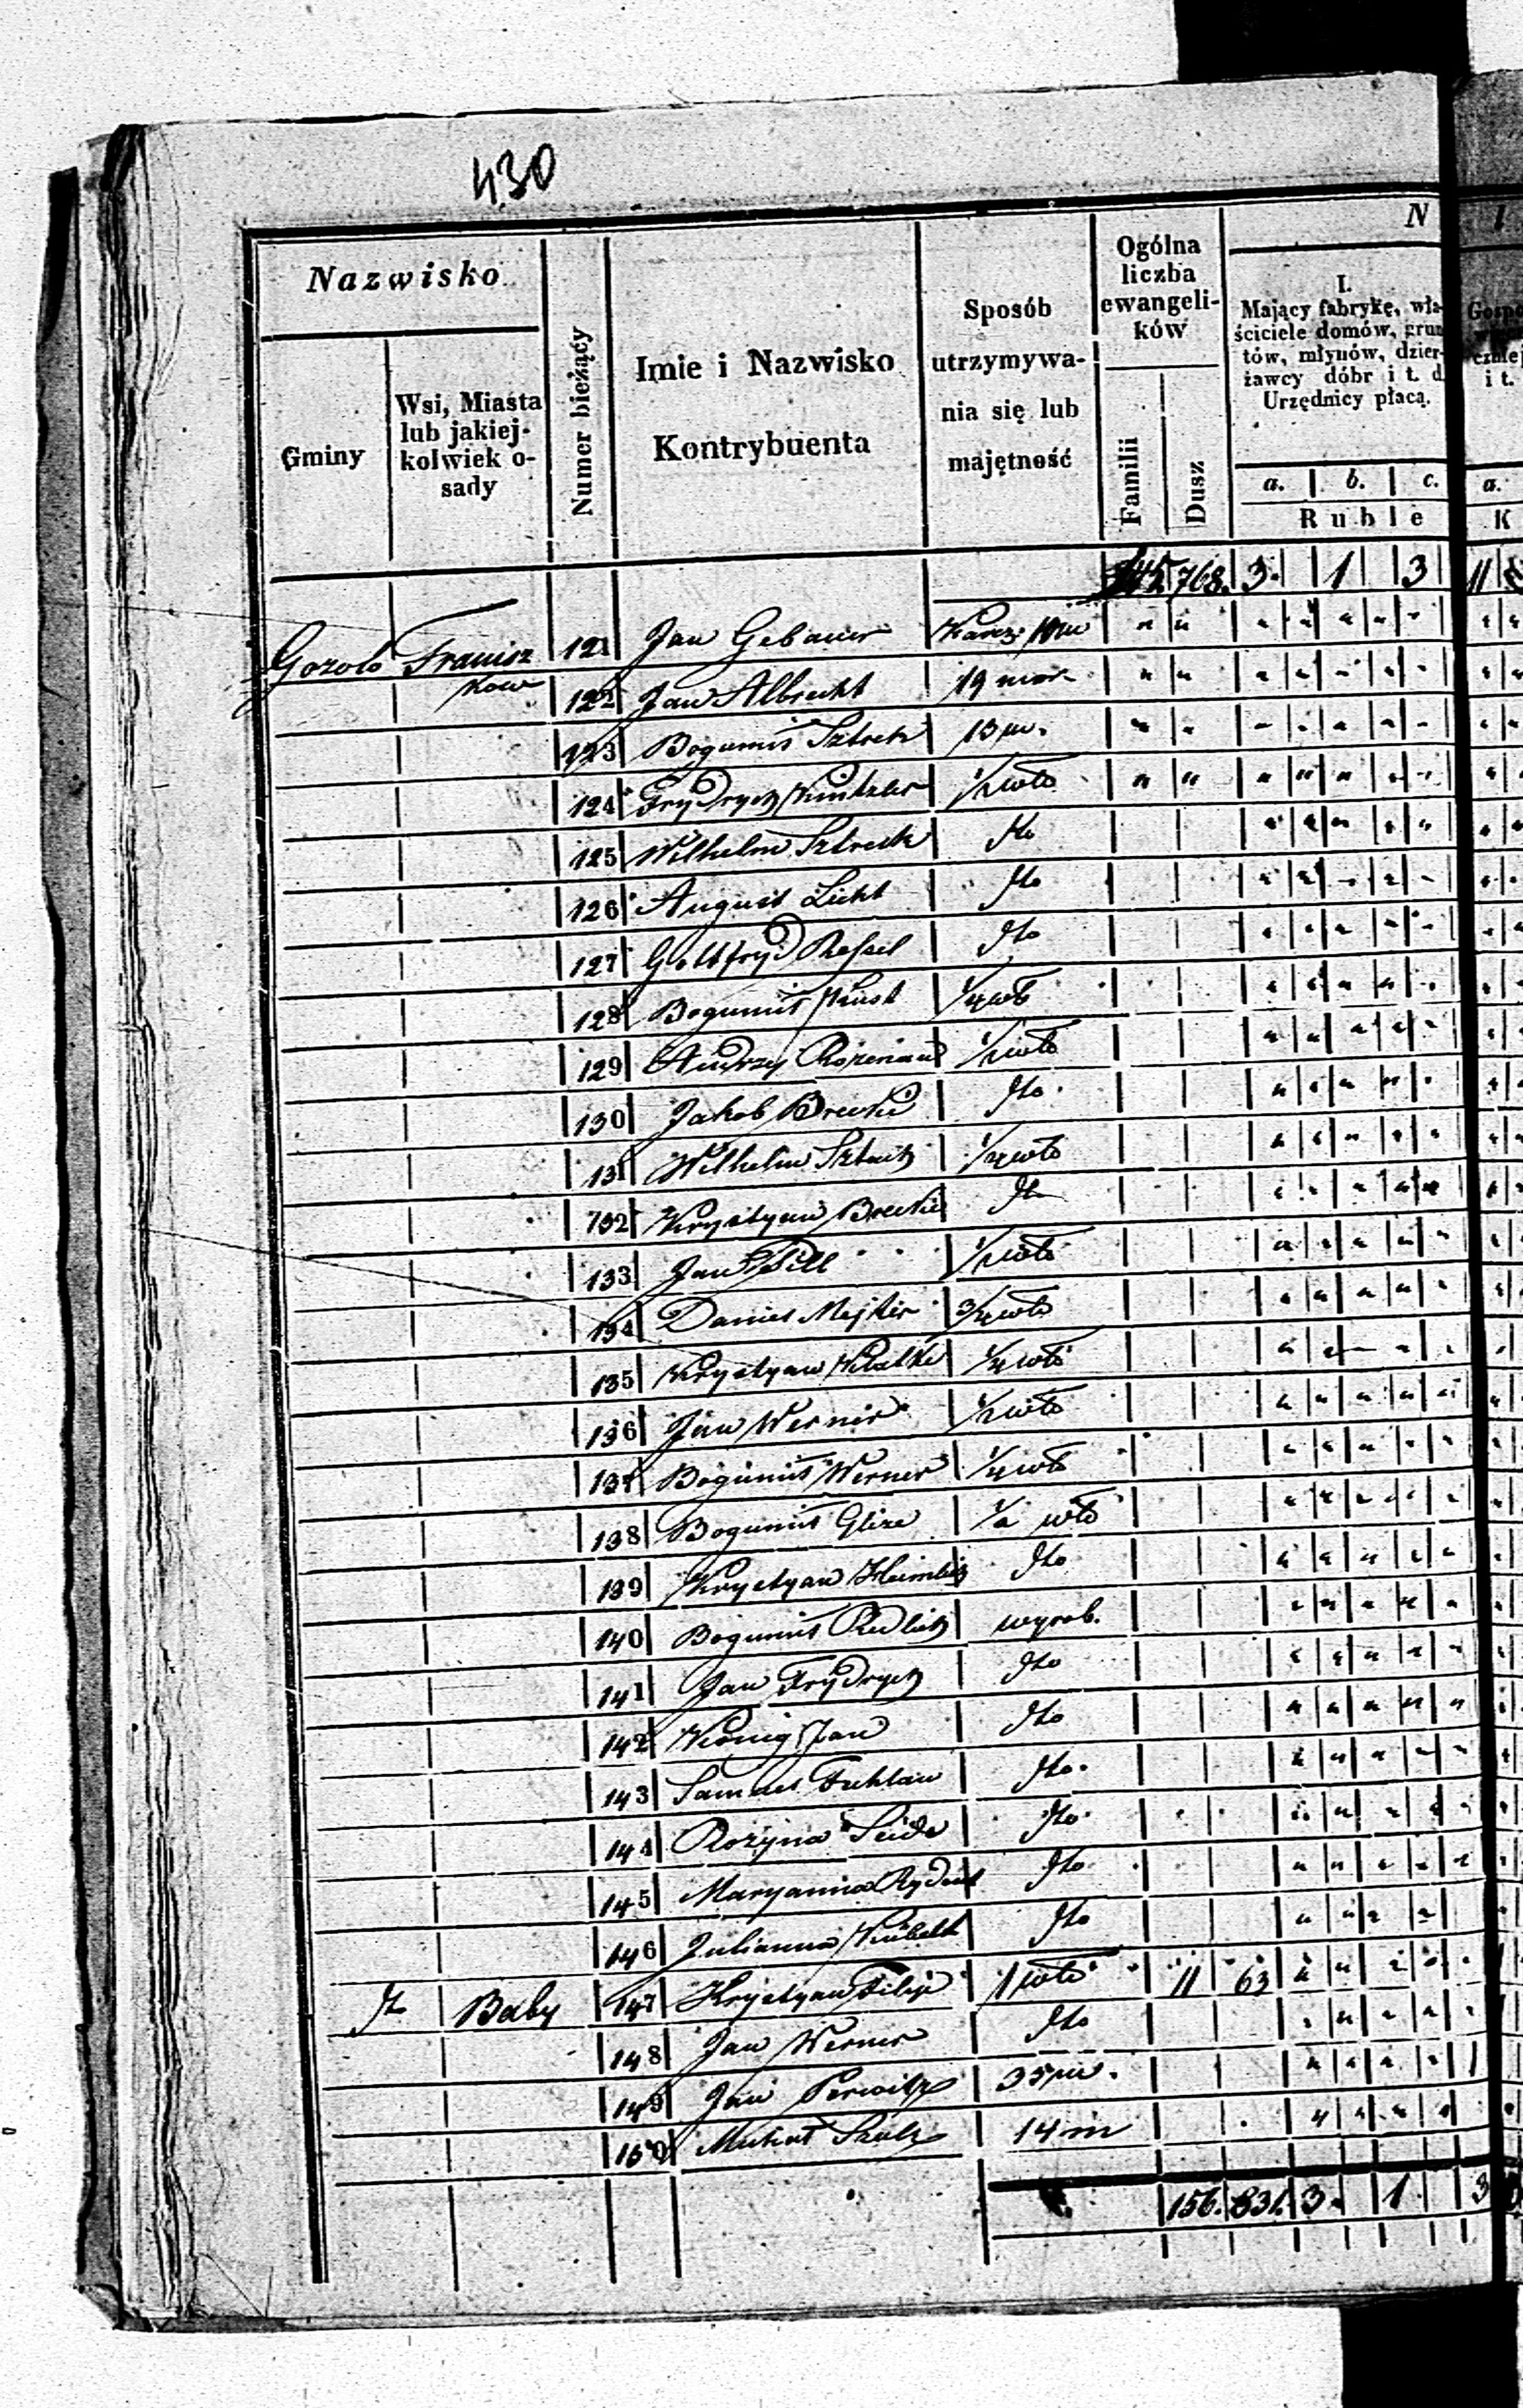 430
Nazwisko
Gminy
Wsi, Miasta lub jakiej-kolwiek o-sady
Numer bieżący
Imie i Nazwisko
Kontrybuenta
Sposób
utrzymywa-
nia się lub
majętność
Ogólna
liczba
ewangeli-
ków
Familii
Dusz
N
I.
Mający fabrykę, wła-
ściciele domów, grun
tów, młynów, dzier-
żawcy dóbr i t. d.
Urzędnicy płacą.
a. b. c.
Ruble
a.
K
i t.
145. 768. 3. 1 3 11
Franisz 121 Jan Gebauer
kow 122 Jan Albrecht 19 mor
123 Bogumił Sztrek 13 m.
124 Frydrych Kintzler 1/2 wło
125 Wilhelm Sztreck dto
126 August Licht dto
127 Gottfryd Ressel dto
128 Bogumił Kust 1/4 wło
129 Andrzej 1/2 wło
130 Jakob Brecki dto
131 Wilhelm 1/4 wło
132 Krystyan Brecki dto
133 Jan Till 1/2 wło
134 Daniel Mejster 3/4 wło
135 Krystyan 1/4 wło
136 Jan Werner 1/2 wło
137 Bogumił Werner 1/4 wło
138 Bogumił Glize wło
139 Krystyan dto
140 Bogumił Redlich wyrob.
141 Jan Frydrych dto
142 König Jan dto
143 Samuel dto
144 Rozyna Seide dto
145 Maryanna dto
146 Julianna dto
dto Baby 147 Krystyan Filip 1 wło 11 63
148 Jan Werner dto
149 Jan Perwitz 35 m.
150 Michał Szulz 14 m
156. 831. 3. 1 3